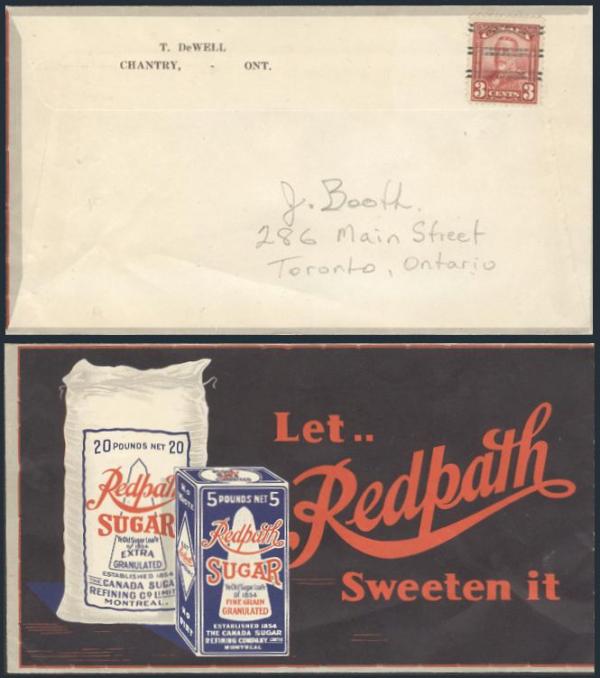 T. DeWELL
CHANTRY, - ONT.
CANADA
3 CENTS 3
J. Booth.
286 Main Street
Toronto, Ontario
20 POUNDS NET 20
Redpath
SUGAR
"Ye Old Sugar Loafe"
of 1854
EXTRA
GRANULATED
ESTABLISHED 1854
THE CANADA SUGA
REFINING CO LIMIT
MONTREAL.
NO
DIRT
5 POUNDS NET 5
Redpath
SUGAR
"Ye Old Sugar Loafe"
of 1854
FINE GRAIN
GRANULATED
ESTABLISHED 1854
THE CANADA SUGAR
REFINING COMPANY LIMITED
MONTREAL
Let..
Redpath
Sweeten it